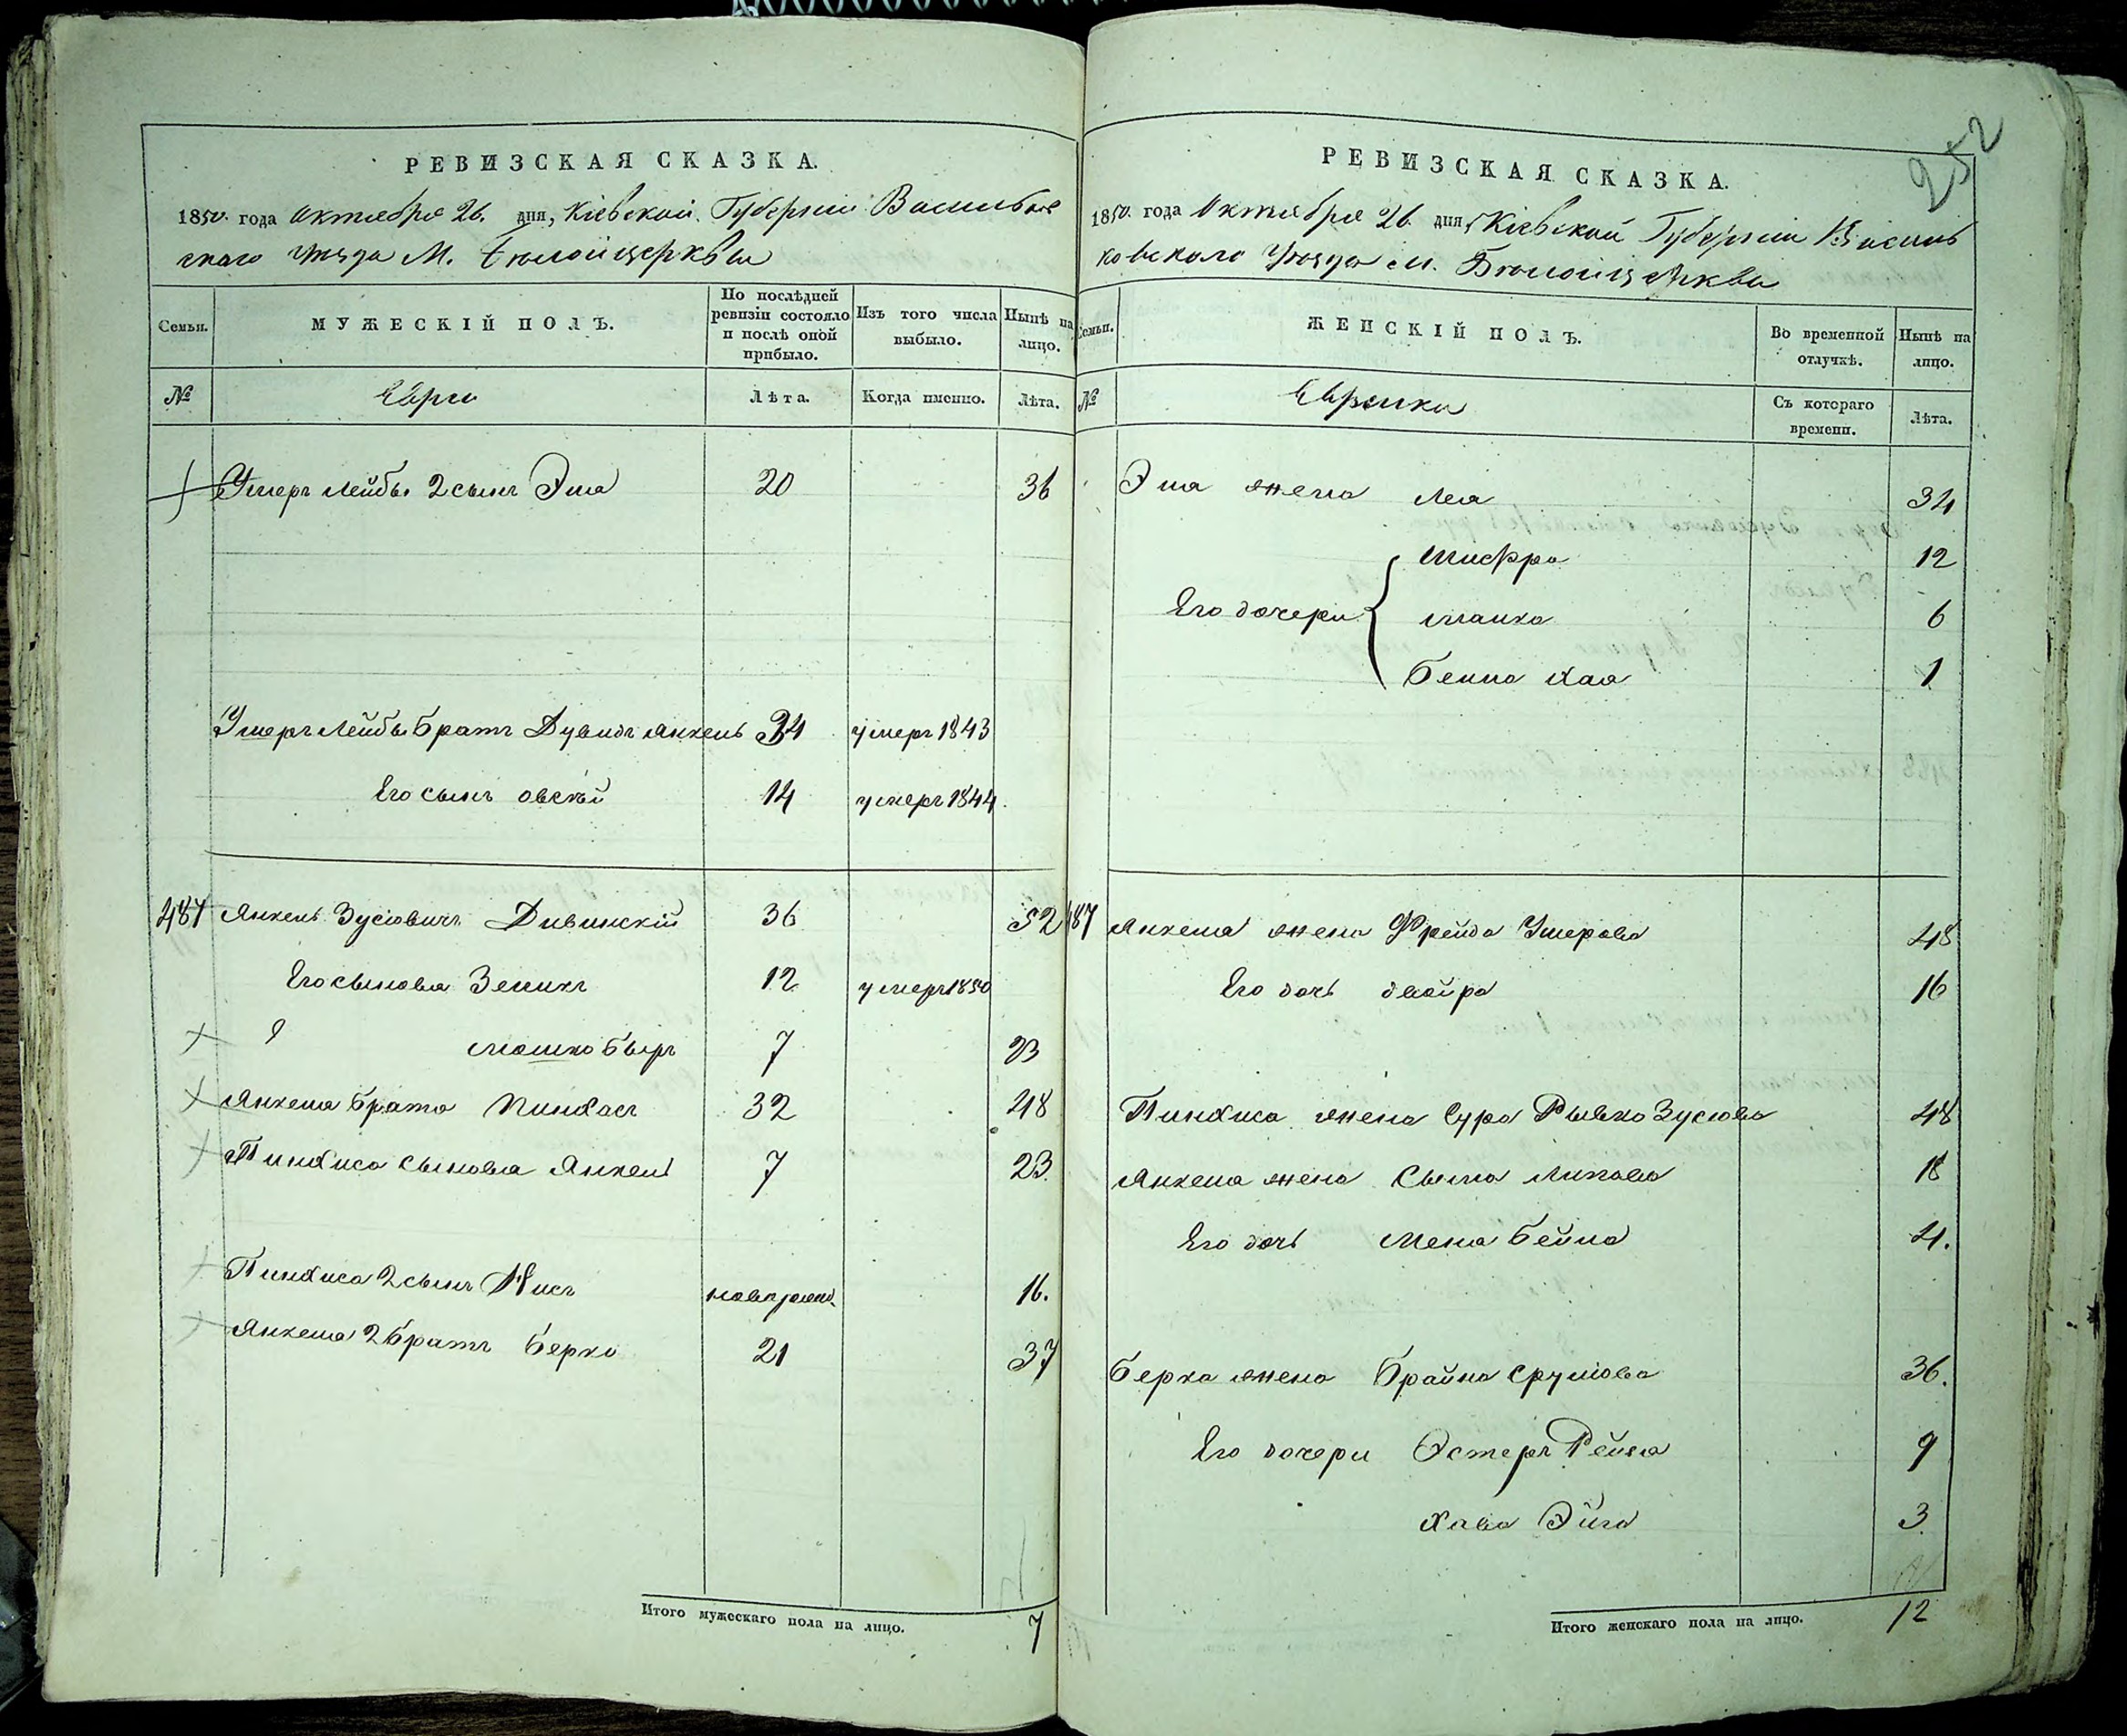 РЕВИЗСКАЯ СКАЗКА.
1850. года Октября 26. дня, Кіевской Губерніи Васильков
скаго уѣзда М. Бѣлойцеркви
Семьи.
МУЖЕСКІЙ ПОЛЪ.
По послѣдней ревизіи состояло и послѣ оной прибыло.
Изъ того числа выбыло.
Нынѣ на лицо.
№
Евреи
Лѣта.
Когда именно.
Лѣта.
Умеръ Лейбы 2 сынъ 20 36
Умеръ Лейбы братъ Дувидъ Янкель 34 умеръ 1843
Его сынъ Овсѣй 14 умеръ 1844.
487 Янкель Зусіовичъ Дивинскій 36 52
Его сыновья Зелихъ 12 умеръ 1850
Мошко Беръ 7 23
Янкеля брата Пинхасъ 32 48
Пинхиса сыновья Янкель 7 23.
Пинхиса 2 сынъ новорожд. 16.
Янкеля 2 братъ Берко 21 37
Итого мужескаго пола на лицо. 7
252
РЕВИЗСКАЯ СКАЗКА.
1850. года Октября 26. дня, Кіевской Губерніи Василь
ковскаго Уѣзда м. Бѣлойцеркви
Семьи.
ЖЕНСКІЙ ПОЛЪ.
Во временной отлучкѣ.
Нынѣ на лицо.
№
Еврейки
Съ котораго времени.
Лѣта.
жена Леа 34
Шифра 12
Его дочери 6
Бейла Хая 1
487 Янкеля жена Фрейда Умерова 48
Его дочь Двойра 16
Пинхиса жена Сура Рывка Зусіова 48
Янкеля жена 18
Его дочь Бейла 4.
Берка жена Брайна Сруліова 36.
Его дочери Эстеръ Рейза 9
Хава Эйга 3
Итого женскаго пола на лицо. 12